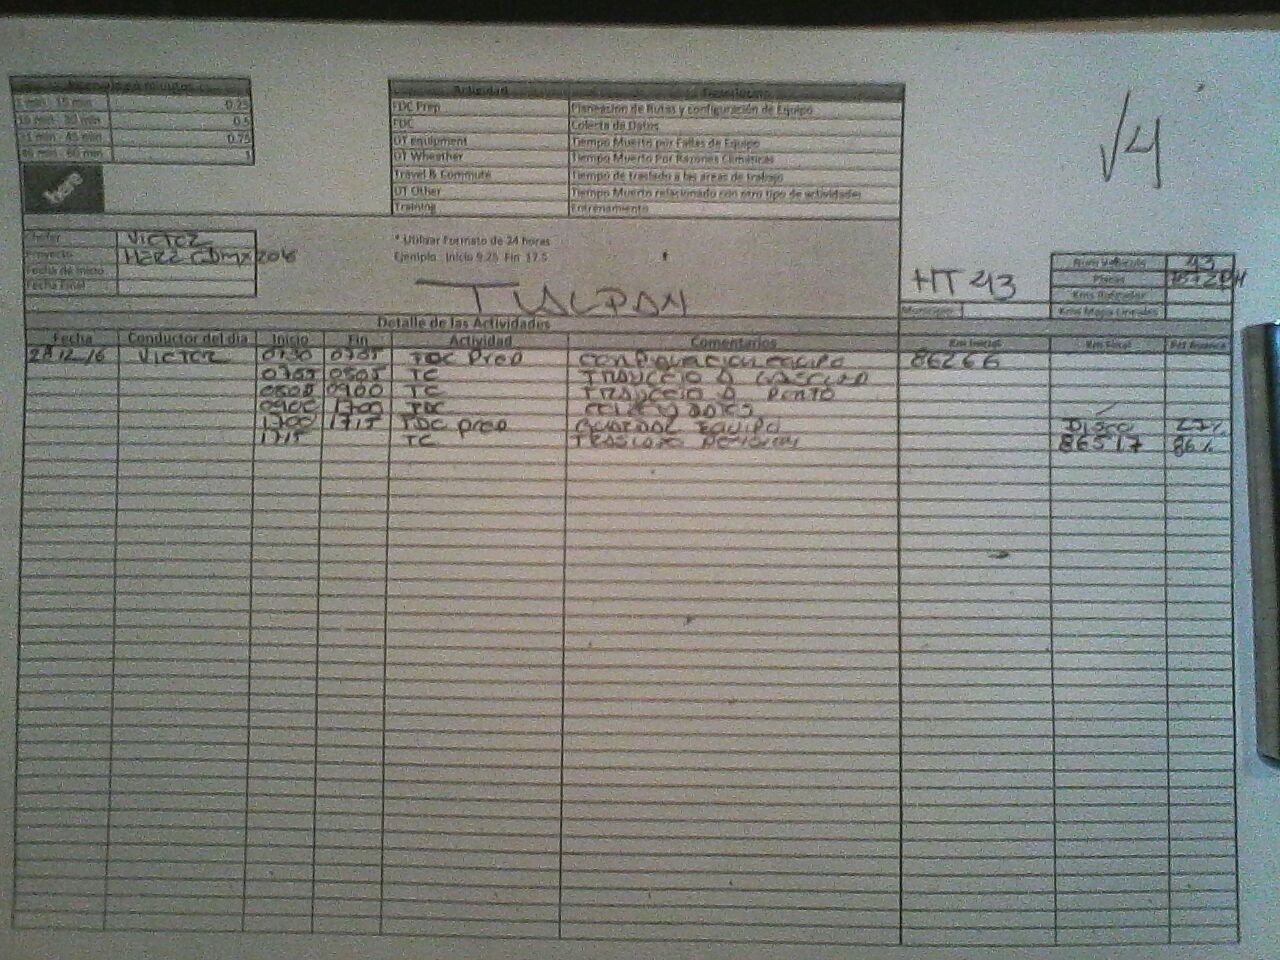 0.25
0.5
0.75
1
here
Actividad
FDC Prep Planeacion de Rutas y configuración de Equipo
FDC Colecta de Datos
DT equipment Tiempo Muerto por Fallas de Equipo
DT Wheather Tiempo Muerto Por Razones Climáticas
Travel & Commute Tiempo de traslado a las areas de trabajo
DT Other Tiempo Muerto relacionado con otro tipo de actividades
Training Entrenamiento
√4
Chofer VICTOR
Proyecto HERE CDMX 2016
Fecha de Inicio
Fecha Final
* Utilizar Formato de 24 horas
Ejemplo: Inicio 9.25 Fin 17.5
TLALPAN
HT 43
Num Vehiculo 43
Placas
Municipio
Detalle de las Actividades
Fecha Conductor del dia Inicio Fin Actividad Comentarios Km Inicial Km Final
28 12 16 VICTOR 0730 0755 FDC Prep CONFIGURACION EQUIPO 86266
0755 0805 TC
0805 0900 TC PUNTO
0900 1700 FDC
1700 1715 FDC prep GUARDAR EQUIPO Disco 27%
1715 TC TRASLADO PENSION 86517 86%